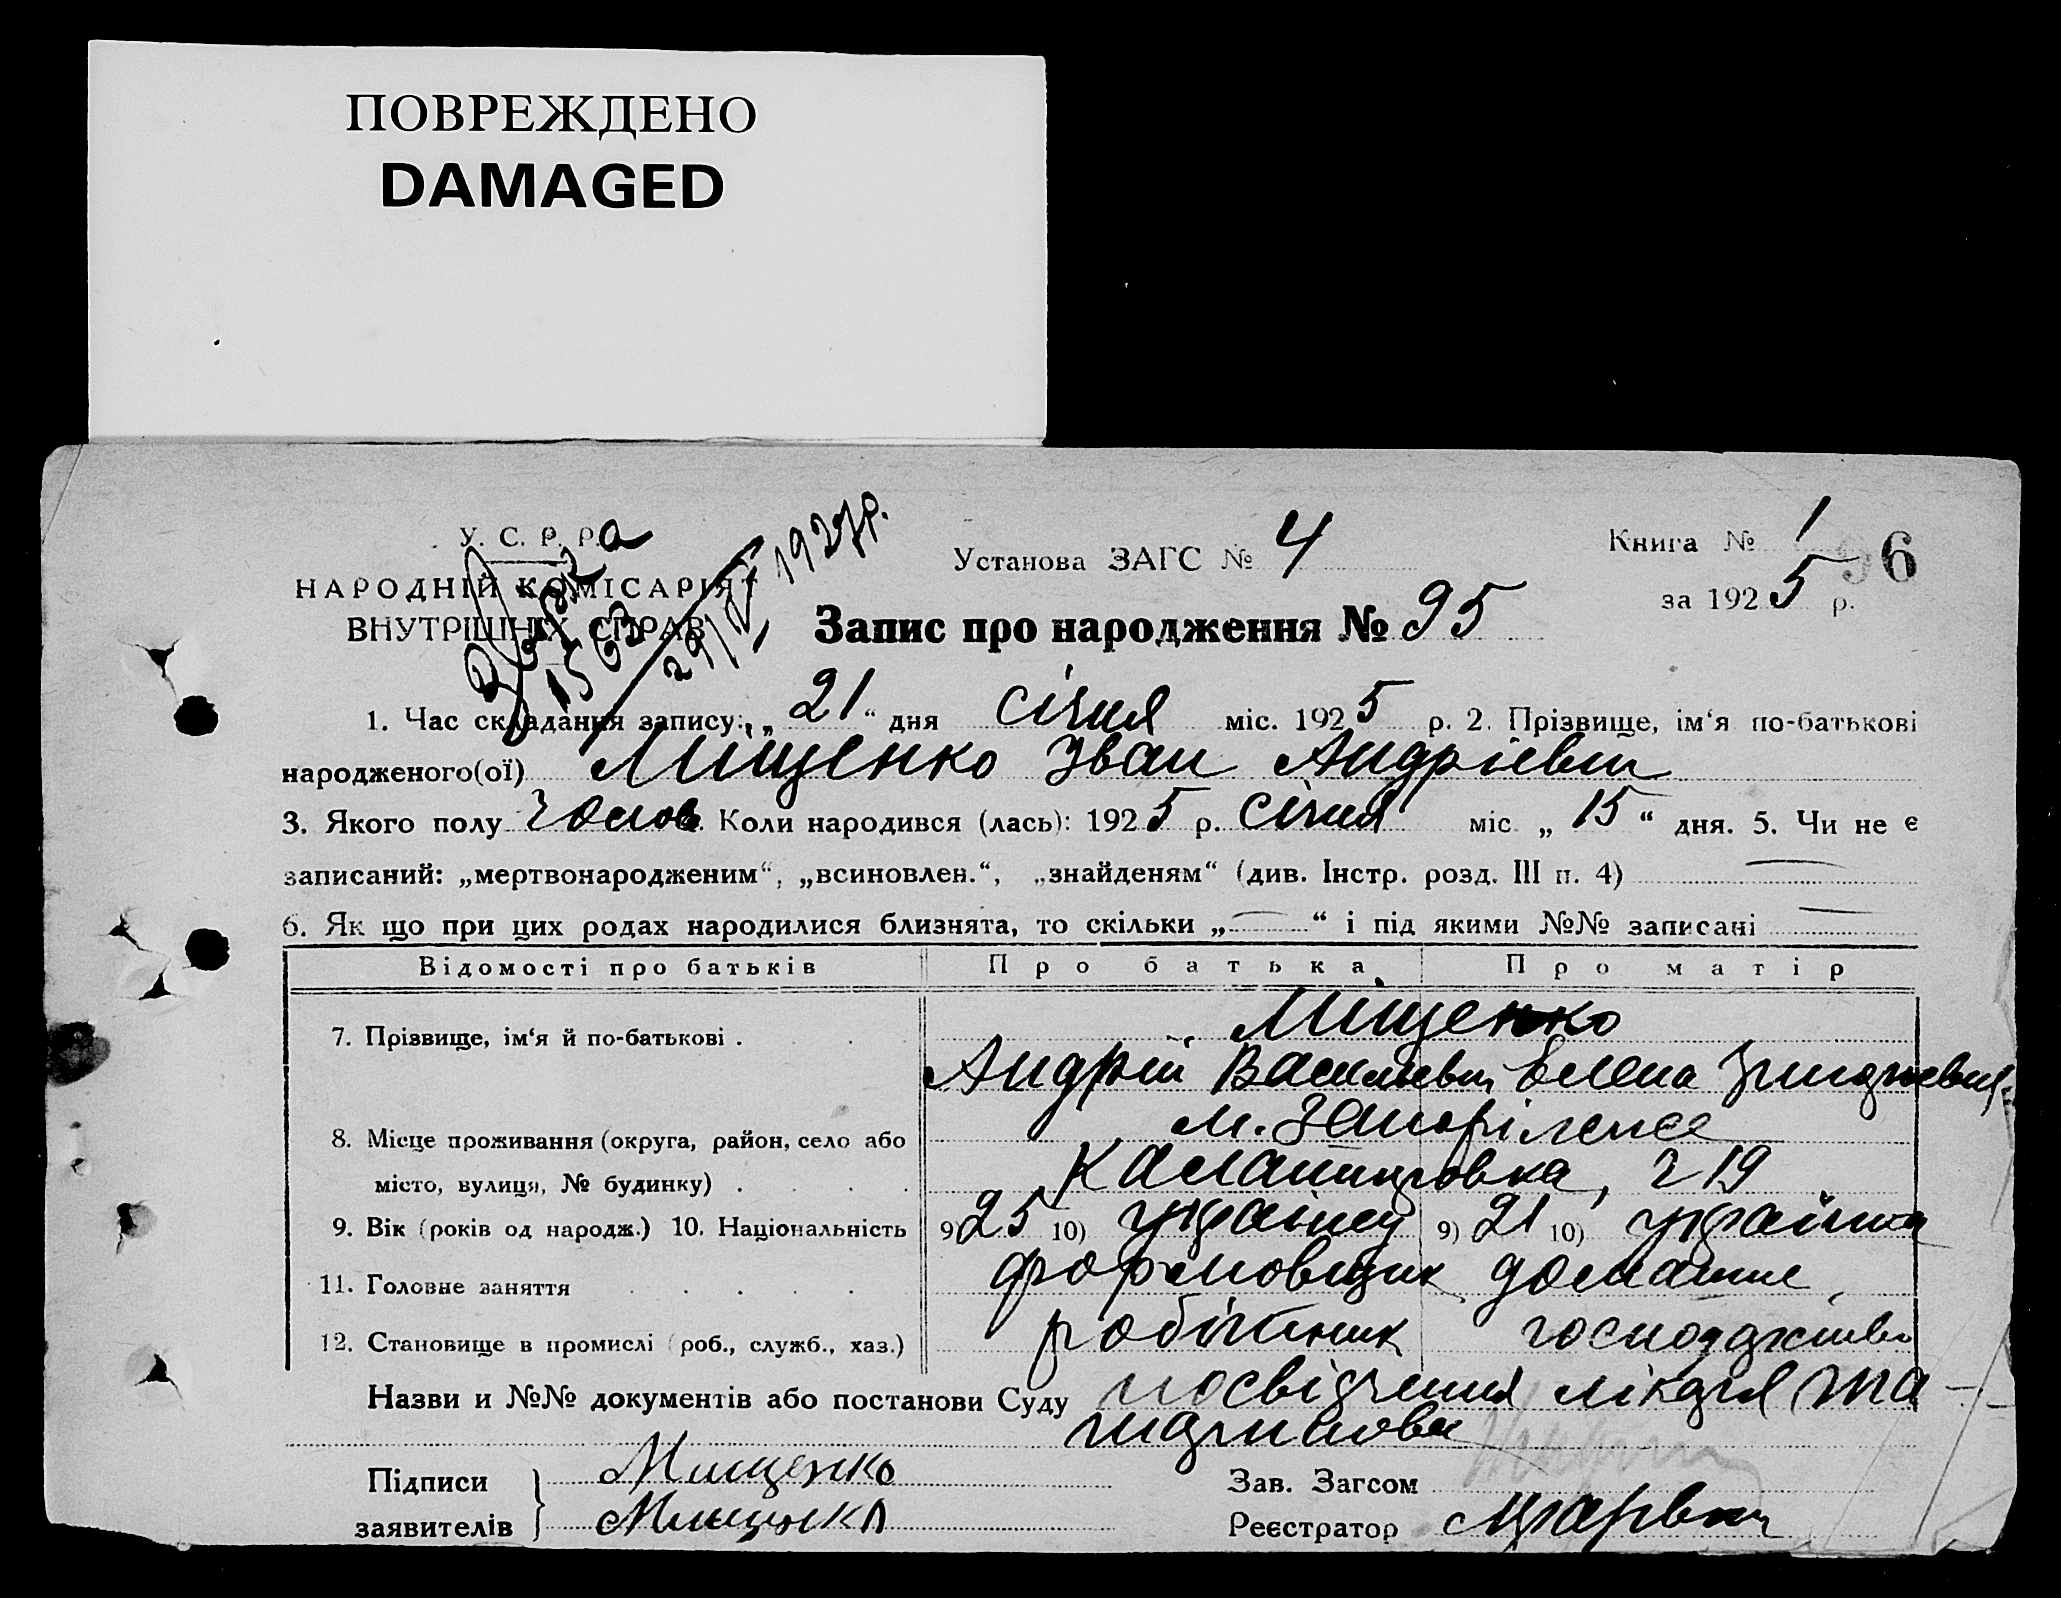 ПОВРЕЖДЕНО
DAMAGED
У. С. Р. Р.
НАРОДНІЙ КОМІСАРІЯТ
ВНУТРІШНІХ СПРАВ
1563
29/IV 1927р.
Установа ЗАГС № 4
Книга № 1
96
за 1925 р.
Запис про народження № 95
1. Час складання запису: „21“ дня січня міс. 1925 р. 2. Прізвище, ім‘я по-батькові
народженого(ої) Мищенко Іван Андрієвич
3. Якого полу чолов. Коли народився (лась): 1925 р. січня міс. „15“ дня. 5. Чи не є
записаний: „мертвонародженим“, „всиновлен.“, „знайденям“ (див. Інстр. розд. III п. 4) —
6. Як що при цих родах народилися близнята, то скільки „—“ і під якими №№ записані —
Відомості про батьків Про батька Про матір
7. Прізвище, ім‘я й по-батькові . Міщенко
Андрій Васильевич Елена
8. Місце проживання (округа, район, село або м. Запоріжжє
місто, вулиця, № будинку) . 219
9. Вік (років од народж.) 10. Національність 9) 25 10) українец 9) 21 10) українка
11. Головне заняття формовщик домашнє
12. Становище в промислі (роб., служб., хаз.) робітник господарство
Назви и №№ документів або постанови Суду посвідчення лікаря та
Підписи Мищенко Зав. Загсом
заявителів Мищенко Реєстратор